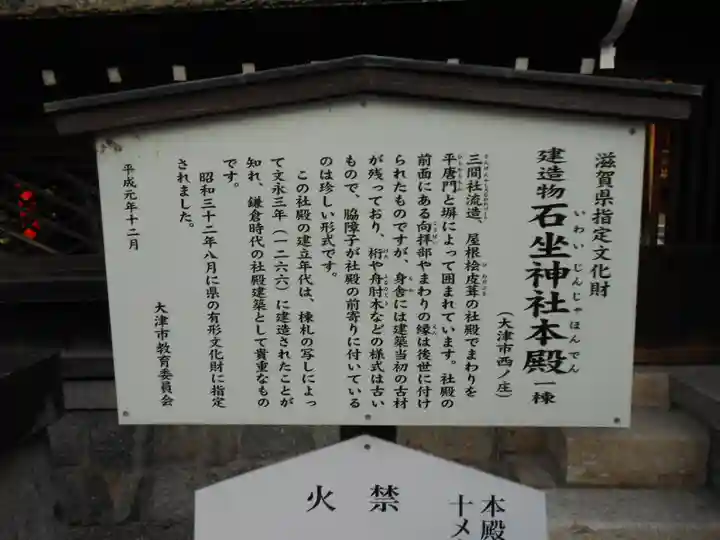 滋賀県指定文化財
建造物 石坐神社本殿 一棟
いわい じんじゃ ほんでん
(大津市西ノ庄)
三間社流造、屋根桧皮葺の社殿でまわりを
平唐門と塀によって囲まれています。社殿の
前面にある向拝部やまわりの縁は後世に付け
られたものですが、身舎には建築当初の古材
が残っており、桁や舟肘木などの様式は古い
もので、脇障子が社殿の前寄りに付いている
のは珍しい形式です。
この社殿の建立年代は、棟札の写しによっ
て文永三年(一二六六)に建造されたことが
知れ、鎌倉時代の社殿建築として貴重なもの
です。
昭和三十二年八月に県の有形文化財に指定
されました。
平成元年十二月
大津市教育委員会
本殿
十メ
禁火